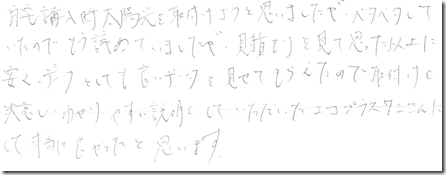 自宅購入時太陽光を取付けようと思いましたが、バタバタして
いたのでもう諦めていましたが、見積もりを見て思った以上に
安く、データとしても良いデータを見せてもらえたので取付けを
決意し、わかりやすい説明をしていただいたエコプラスタニさんに
して本当に良かったと思います。